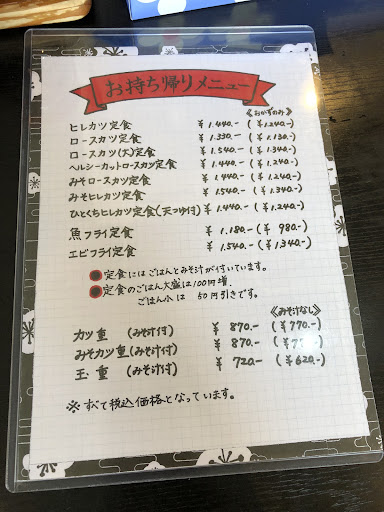 お持ち帰りメニュー
《おかずのみ》
ヒレカツ定食 ¥1.440.- (¥1.240.-)
ロースカツ定食 ¥1.330.- (¥1.130.-)
ロースカツ(大)定食 ¥1.540.- (¥1.340.-)
ヘルシーカットロースカツ定食 ¥1.440.- (¥1.240.-)
みそロースカツ定食 ¥1.440.- (¥1.240.-)
みそヒレカツ定食 ¥1.540.- (¥1.340.-)
ひとくちヒレカツ定食(天つゆ付) ¥1.440.- (¥1.240.-)
魚フライ定食 ¥1.180.- (¥980.-)
エビフライ定食 ¥1.540.- (¥1.340.-)
●定食にはごはんとみそ汁が付いています。
●定食のごはん大盛は100円増。
ごはん小は 50円引きです。
《みそ汁なし》
カツ重 (みそ汁付) ¥870.- (¥770.-)
みそカツ重(みそ汁付) ¥870.-
玉重 (みそ汁付) ¥720.- (¥620.-)
※すべて税込価格となっています。